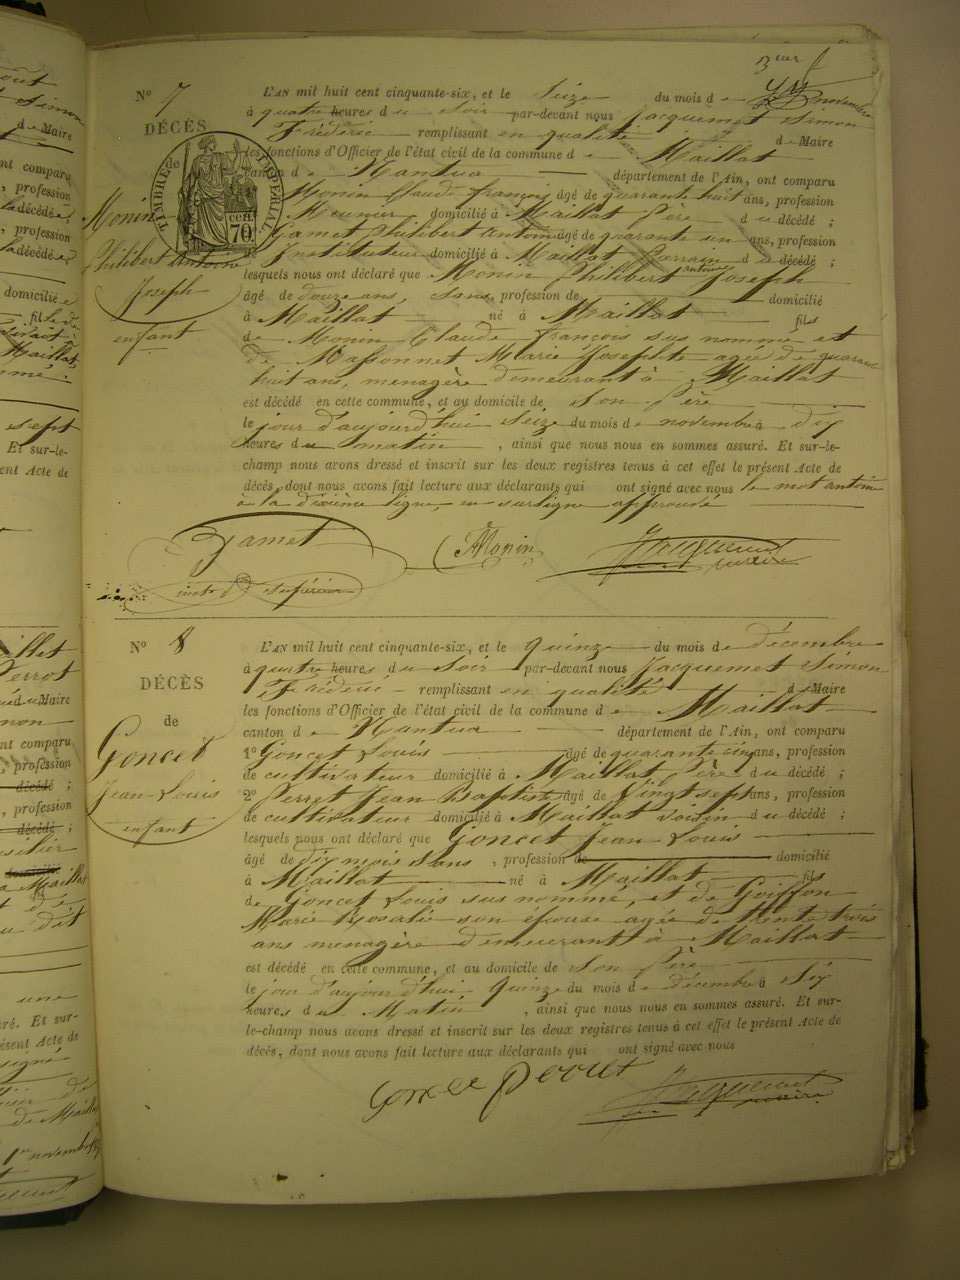 3 uer
N° 7
DÉCÈS
de
TIMBRE IMPÉRIAL
70 cen.
Monin
Philibert Antoine
Joseph
enfant
L'AN mil huit cent cinquante-six, et le Seize du mois de novembre
à quatre heures du soir par-devant nous Jacquemet Simon
Frédéric remplissant en qualité de Maire
les fonctions d'Officier de l'état civil de la commune de Maillat
canton de Nantua département de l'Ain, ont comparu
Monin Claude françois âgé de quarante huit ans, profession
Meunier, domicilié à Maillat Père du décédé ;
Gamet Philibert Antoine âgé de quarante un ans, profession
de Instituteur domicilié à Maillat Parrain du décédé ;
lesquels nous ont déclaré que Monin Philibert antoine Joseph
âgé de douze ans, sans, profession de domicilié
à Maillat né à Maillat fils
de Monin Claude françois sus nommé et
de Massonnet Marie Josephte agée de quarante
huit ans, menagère demeurant à Maillat
est décédé en cette commune, et au domicile de son Père
le jour d'aujourd'hui Seize du mois de novembre à dix
heures du matin, ainsi que nous nous en sommes assuré. Et sur-le-
champ nous avons dressé et inscrit sur les deux registres tenus à cet effet le présent Acte de
décès, dont nous avons fait lecture aux déclarants qui ont signé avec nous le mot antoine
à la dixième ligne, en surligne approuvé
Gamet Monin Jacquemet
instr supérieur maire
N° 8
DÉCÈS
de
Goncet
Jean-Louis
enfant
L'AN mil huit cent cinquante-six, et le quinze du mois de décembre
à quatre heures du soir par-devant nous Jacquemet Simon
Frédéric remplissant en qualité de Maire
les fonctions d'Officier de l'état civil de la commune de Maillat
canton de Nantua département de l'Ain, ont comparu
1° Goncet Louis âgé de quarante cinq ans, profession
de cultivateur domicilié à Maillat Père du décédé ;
2° Perret Jean Baptiste âgé de Vingt sept ans, profession
de cultivateur domicilié à Maillat voisin du décédé ;
lesquels nous ont déclaré que Goncet Jean Louis
âgé de dix mois sans, profession de domicilié
à Maillat né à Maillat fils
de Goncet Louis sus nommé, et de Goiffon
Marie Rosalie son épouse agée de trente trois
ans menagère demeurant à Maillat
est décédé en cette commune, et au domicile de son Père
le jour d'aujourd'hui quinze du mois de décembre à Six
heures du Matin, ainsi que nous nous en sommes assuré. Et sur-
le-champ nous avons dressé et inscrit sur les deux registres tenus à cet effet le présent Acte de
décès, dont nous avons fait lecture aux déclarants qui ont signé avec nous
Goncet Perret Jacquemet
maire